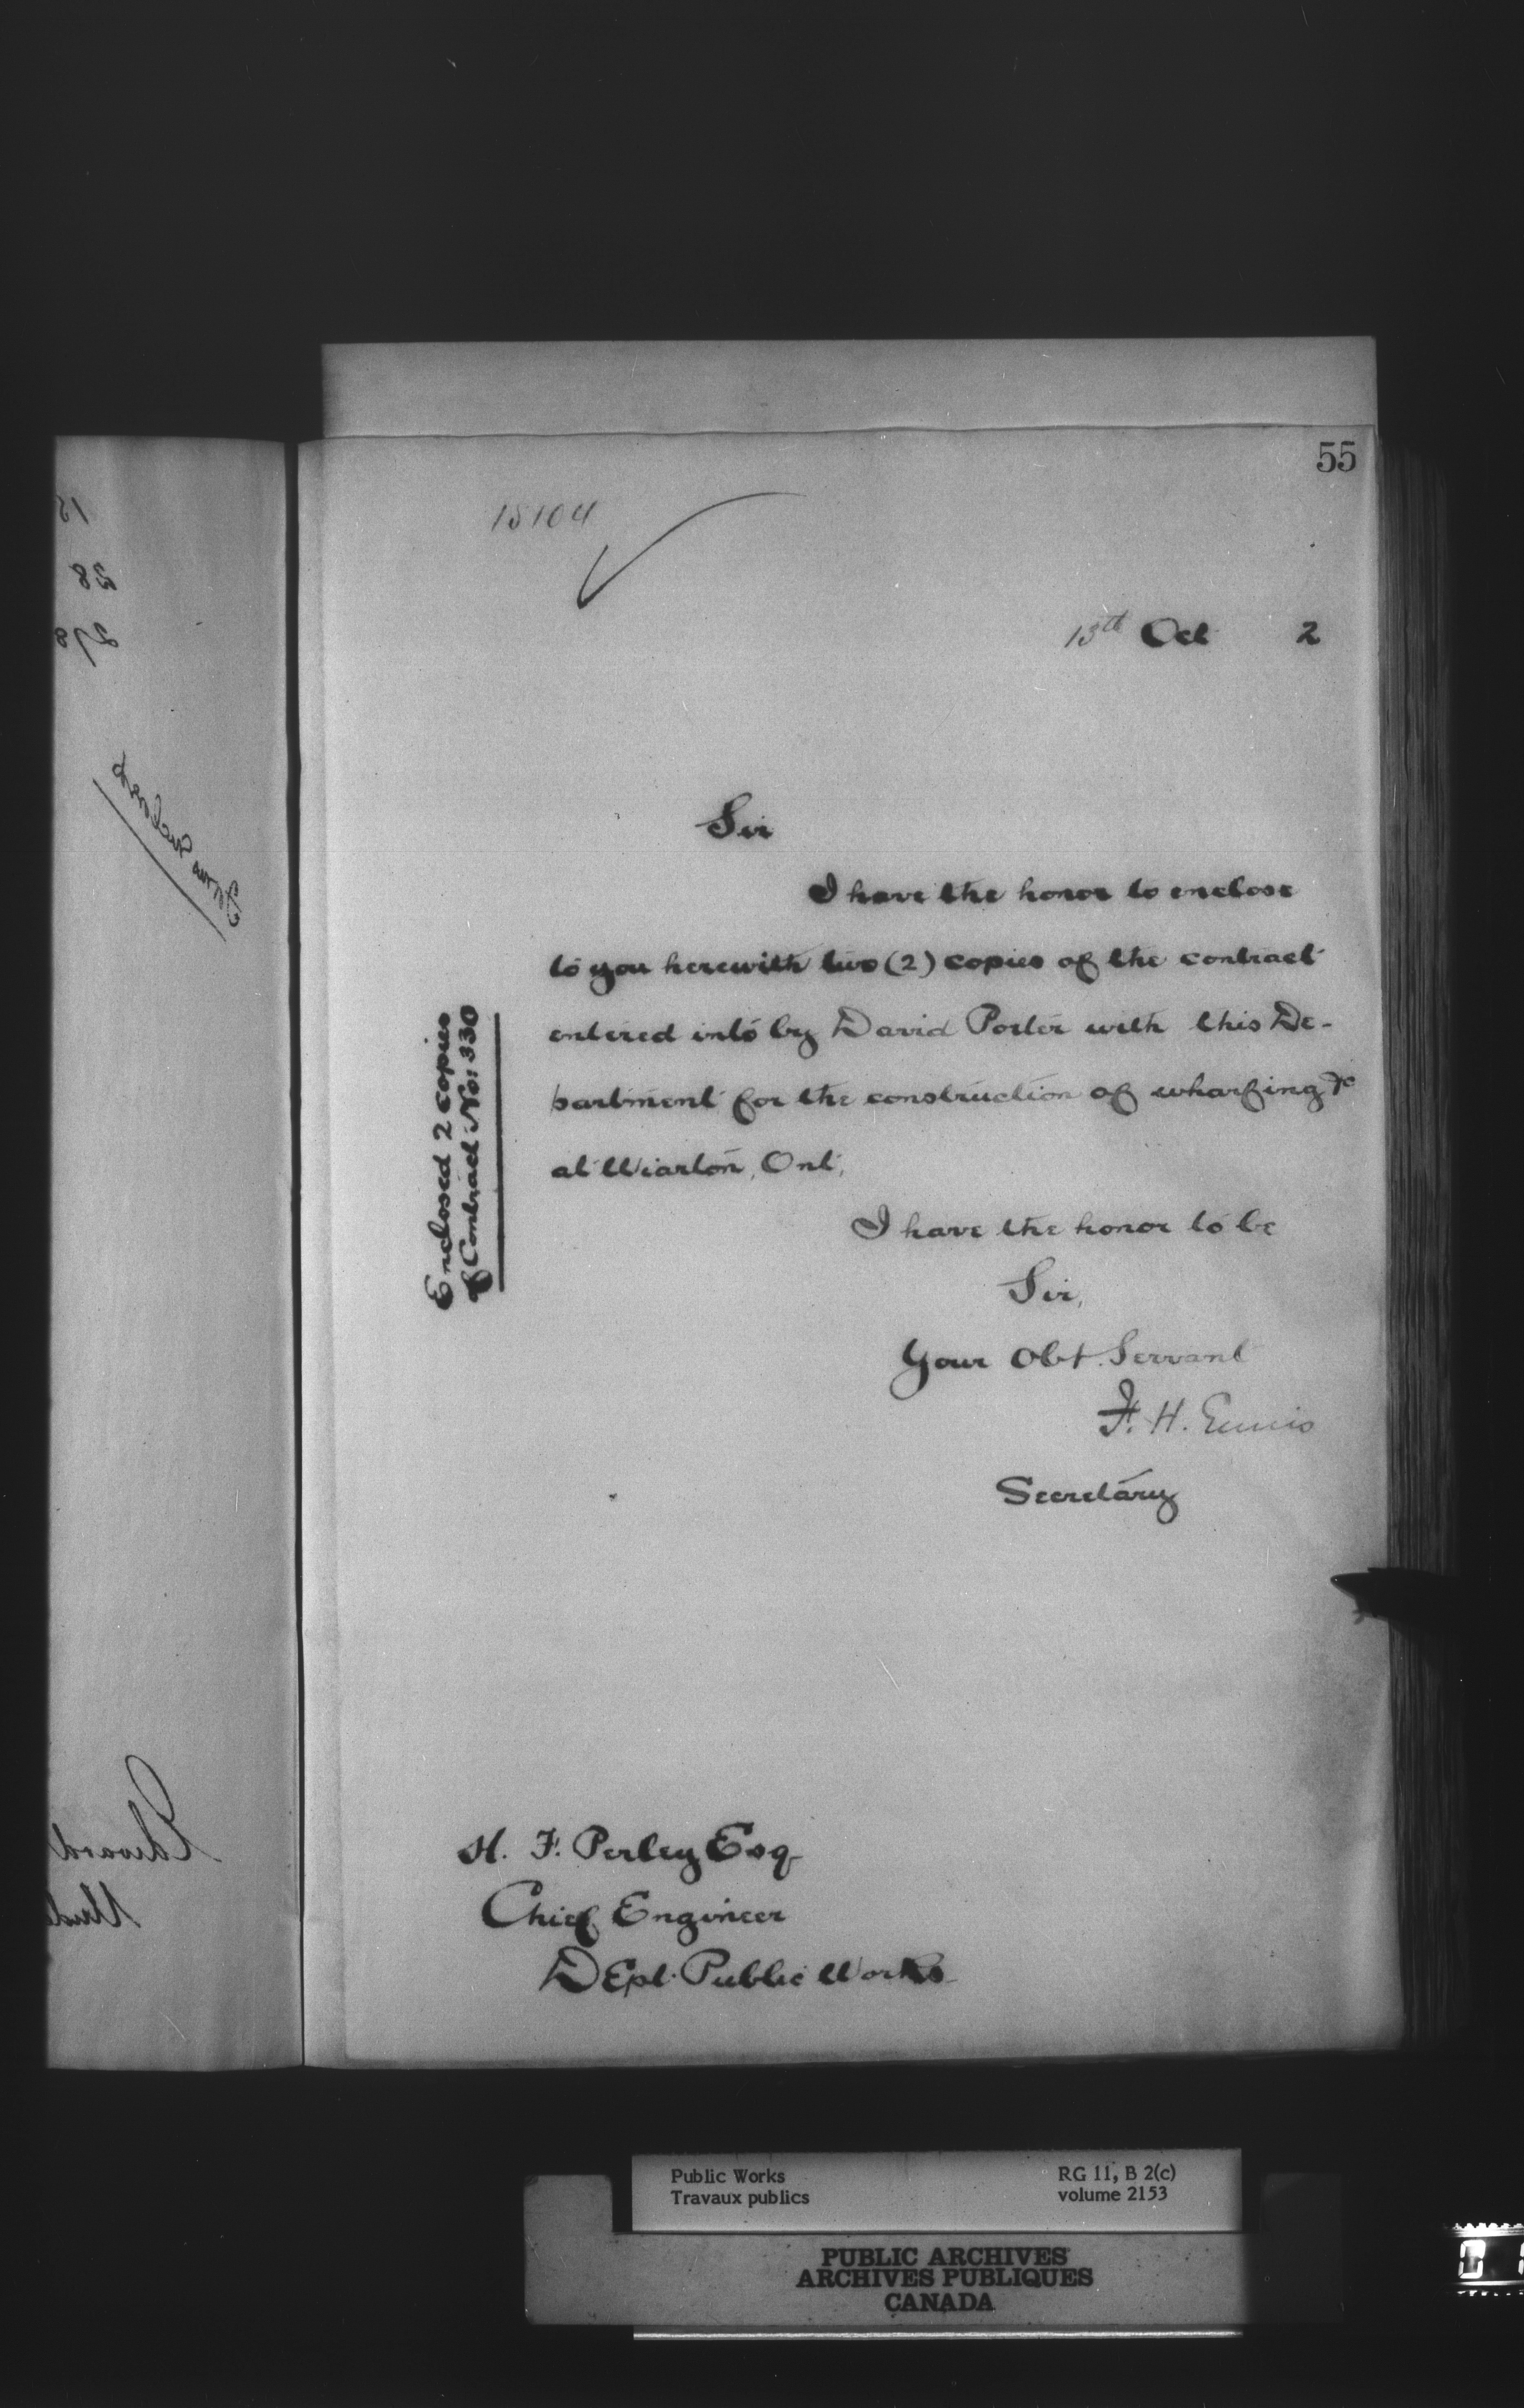 55
15104
13th Oct 2
Sir
I have the honor to enclose
to you herewith two (2) copies of the contract
entered into by David Porter with this De-
partment for the construction of wharfing &c
at Wiarton, Ont.
Enclosed 2 copies
of Contract No: 330
I have the honor to be
Sir,
Your Obt. Servant
F. H. Ennis
Secretary
H. F. Perley Esq
Chief Engineer
Dept. Public Works
Public Works
Travaux publics
RG 11, B 2(c)
volume 2153
PUBLIC ARCHIVES
ARCHIVES PUBLIQUES
CANADA